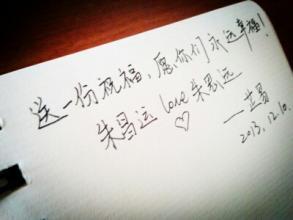 送一份祝福，愿你们永远幸福！
朱昌运 love 朱思远
♡
——艺易
2013.12.10.